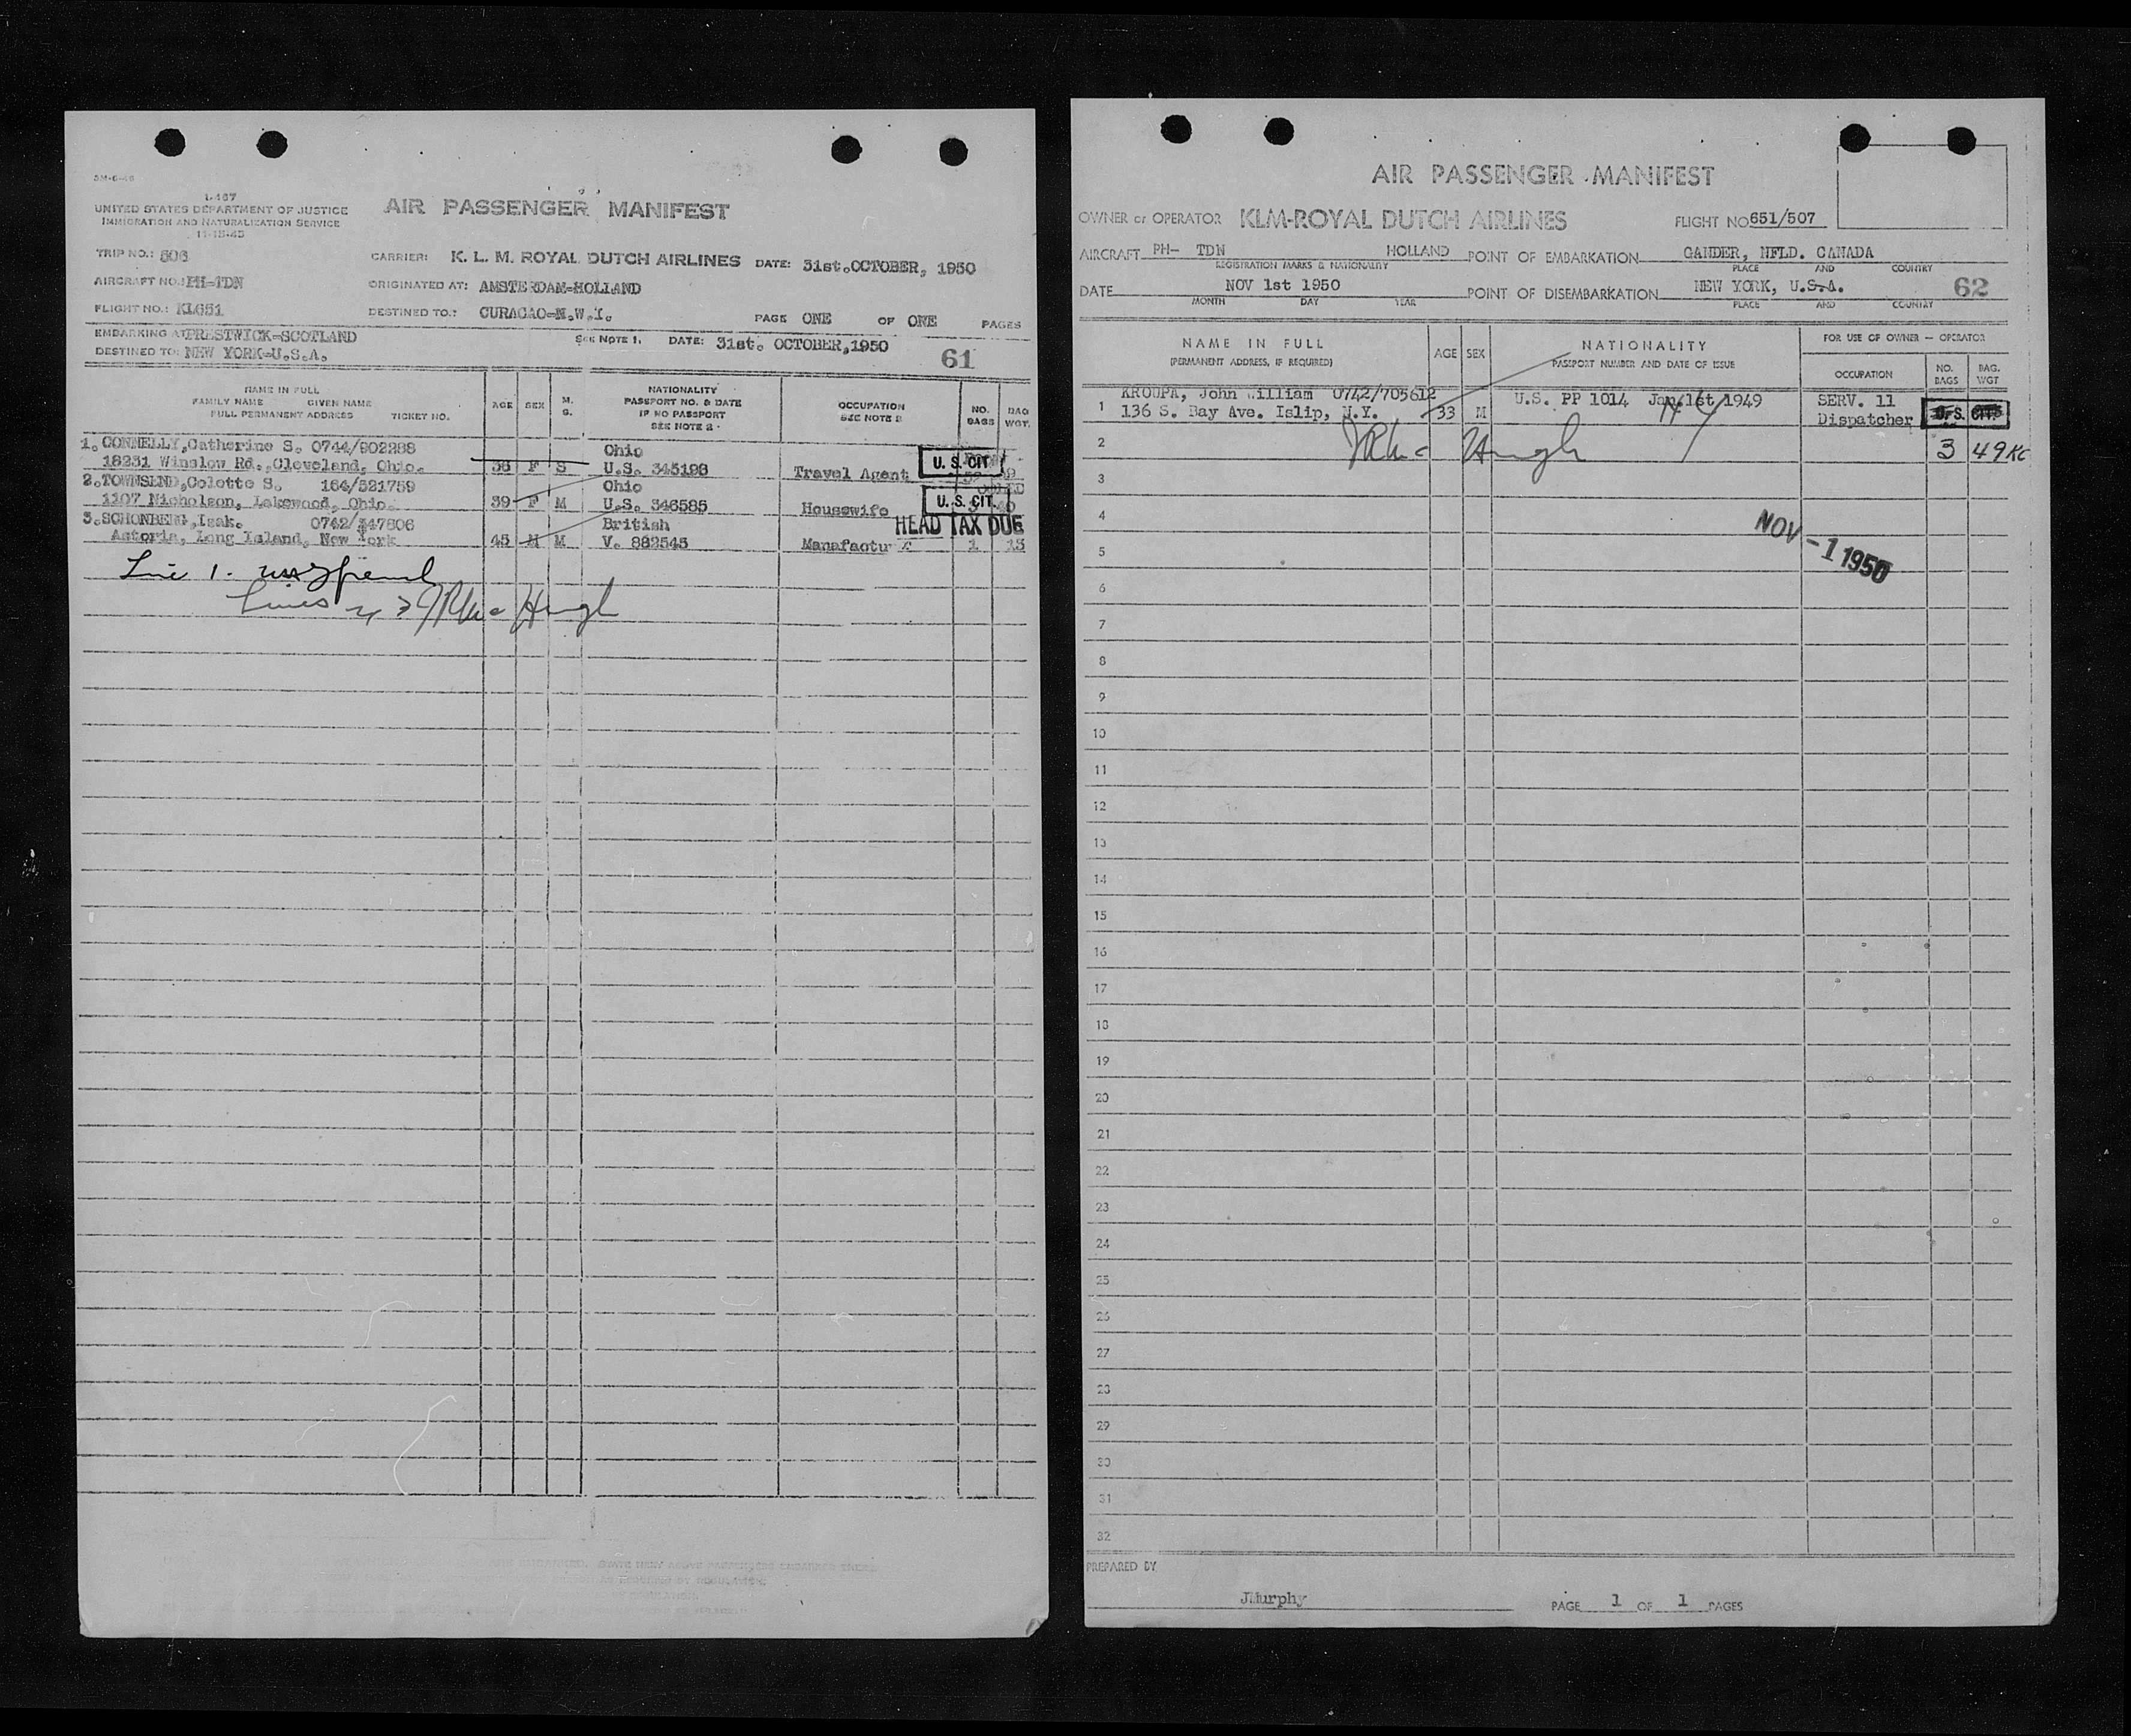 3M-6-46
I-467
UNITED STATES DEPARTMENT OF JUSTICE
IMMIGRATION AND NATURALIZATION SERVICE
11-15-45
AIR PASSENGER MANIFEST
TRIP NO.: 506
CARRIER: K. L. M. ROYAL DUTCH AIRLINES DATE: 31st.OCTOBER, 1950
AIRCRAFT NO.: PH-TDN
ORIGINATED AT: AMSTERDAM-HOLLAND
FLIGHT NO.: KL651
DESTINED TO.: CURACAO-N.W.I. PAGE ONE OF ONE PAGES
EMBARKING AT PRESTWICK-SCOTLAND
SEE NOTE 1. DATE: 31st. OCTOBER,1950
DESTINED TO: NEW YORK-U.S.A.
61
NAME IN FULL
FAMILY NAME GIVEN NAME
FULL PERMANENT ADDRESS TICKET NO.
AGE
SEX
M.
S.
NATIONALITY
PASSPORT NO. & DATE
IF NO PASSPORT
SEE NOTE 2
OCCUPATION
SEE NOTE 2
NO.
BAGS
BAG
WGT.
1. CONNELLY,Catherine S. 0744/902288 Ohio
18231 Winslow Rd.,Cleveland, Ohio. 38 F S U.S. 345198 Travel Agent U. S. CIT.
2.TOWNSEND,Colette S. 164/321759 Ohio
1107 Nicholson, Lakewood, Ohio. 39 F M U.S. 346585 Housewife U. S. CIT.
3.SCHONBERG,Isak. 0742/347806 British HEAD TAX DUE
Astoria, Long Island, New York 45 M M V. 882545 Manafactur 1 13
Line 1.
Lines 2 & 3
AIR PASSENGER MANIFEST
OWNER or OPERATOR KLM-ROYAL DUTCH AIRLINES FLIGHT NO 651/507
AIRCRAFT PH- TDN HOLLAND POINT OF EMBARKATION GANDER, NFLD. CANADA
REGISTRATION MARKS & NATIONALITY PLACE AND COUNTRY
DATE NOV 1st 1950 POINT OF DISEMBARKATION NEW YORK, U.S.A. 62
MONTH DAY YEAR PLACE AND COUNTRY
NAME IN FULL
(PERMANENT ADDRESS, IF REQUIRED)
AGE
SEX
NATIONALITY
PASSPORT NUMBER AND DATE OF ISSUE
FOR USE OF OWNER — OPERATOR
OCCUPATION
NO.
BAGS
BAG.
WGT
KROUPA, John William 0742/705612 U.S. PP 1014 Jan.1st 1949 SERV. 11
1 136 S. Bay Ave. Islip, N.Y. 33 M NY Dispatcher U. S. CIT.
2 3 49KG
3
4
NOV -1 1950
5
6
7
8
9
10
11
12
13
14
15
16
17
18
19
20
21
22
23
24
25
26
27
28
29
30
31
32
PREPARED BY
JMurphy
PAGE 1 OF 1 PAGES